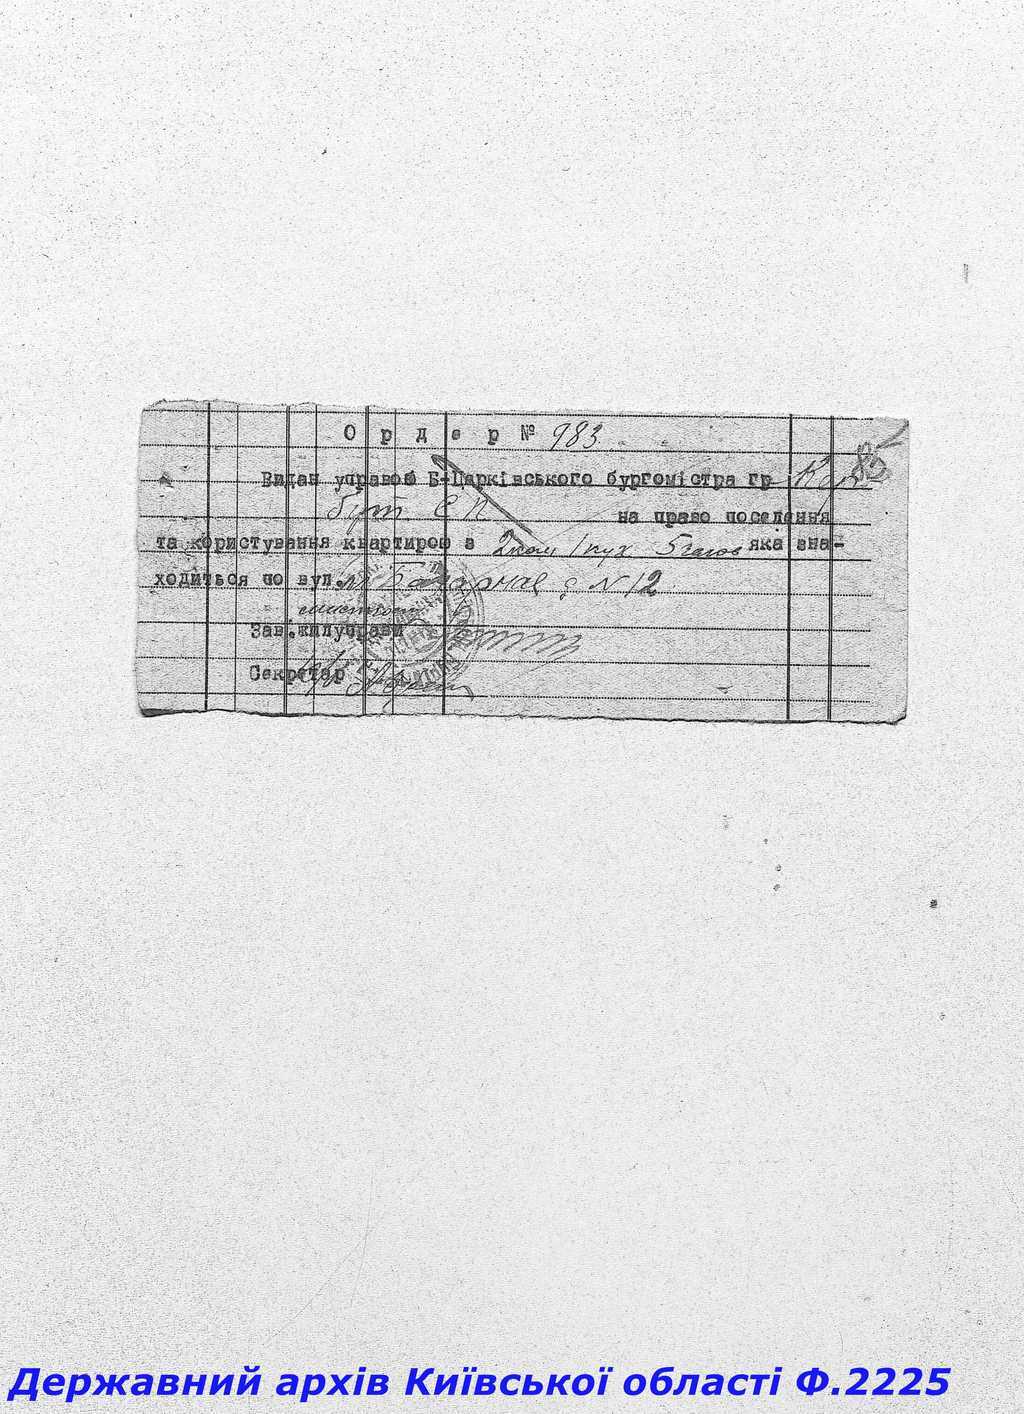 Ордер № 983
Видан управою Б-Церківського бургомістра гр
бут. Є П на право поселення
та користування квартирою з 2 ком 1 кух яка зна-
ходиться по вул. Базарная д N 12
Зав.жилуправи
Секретар
83
Державний архів Київської області Ф.2225